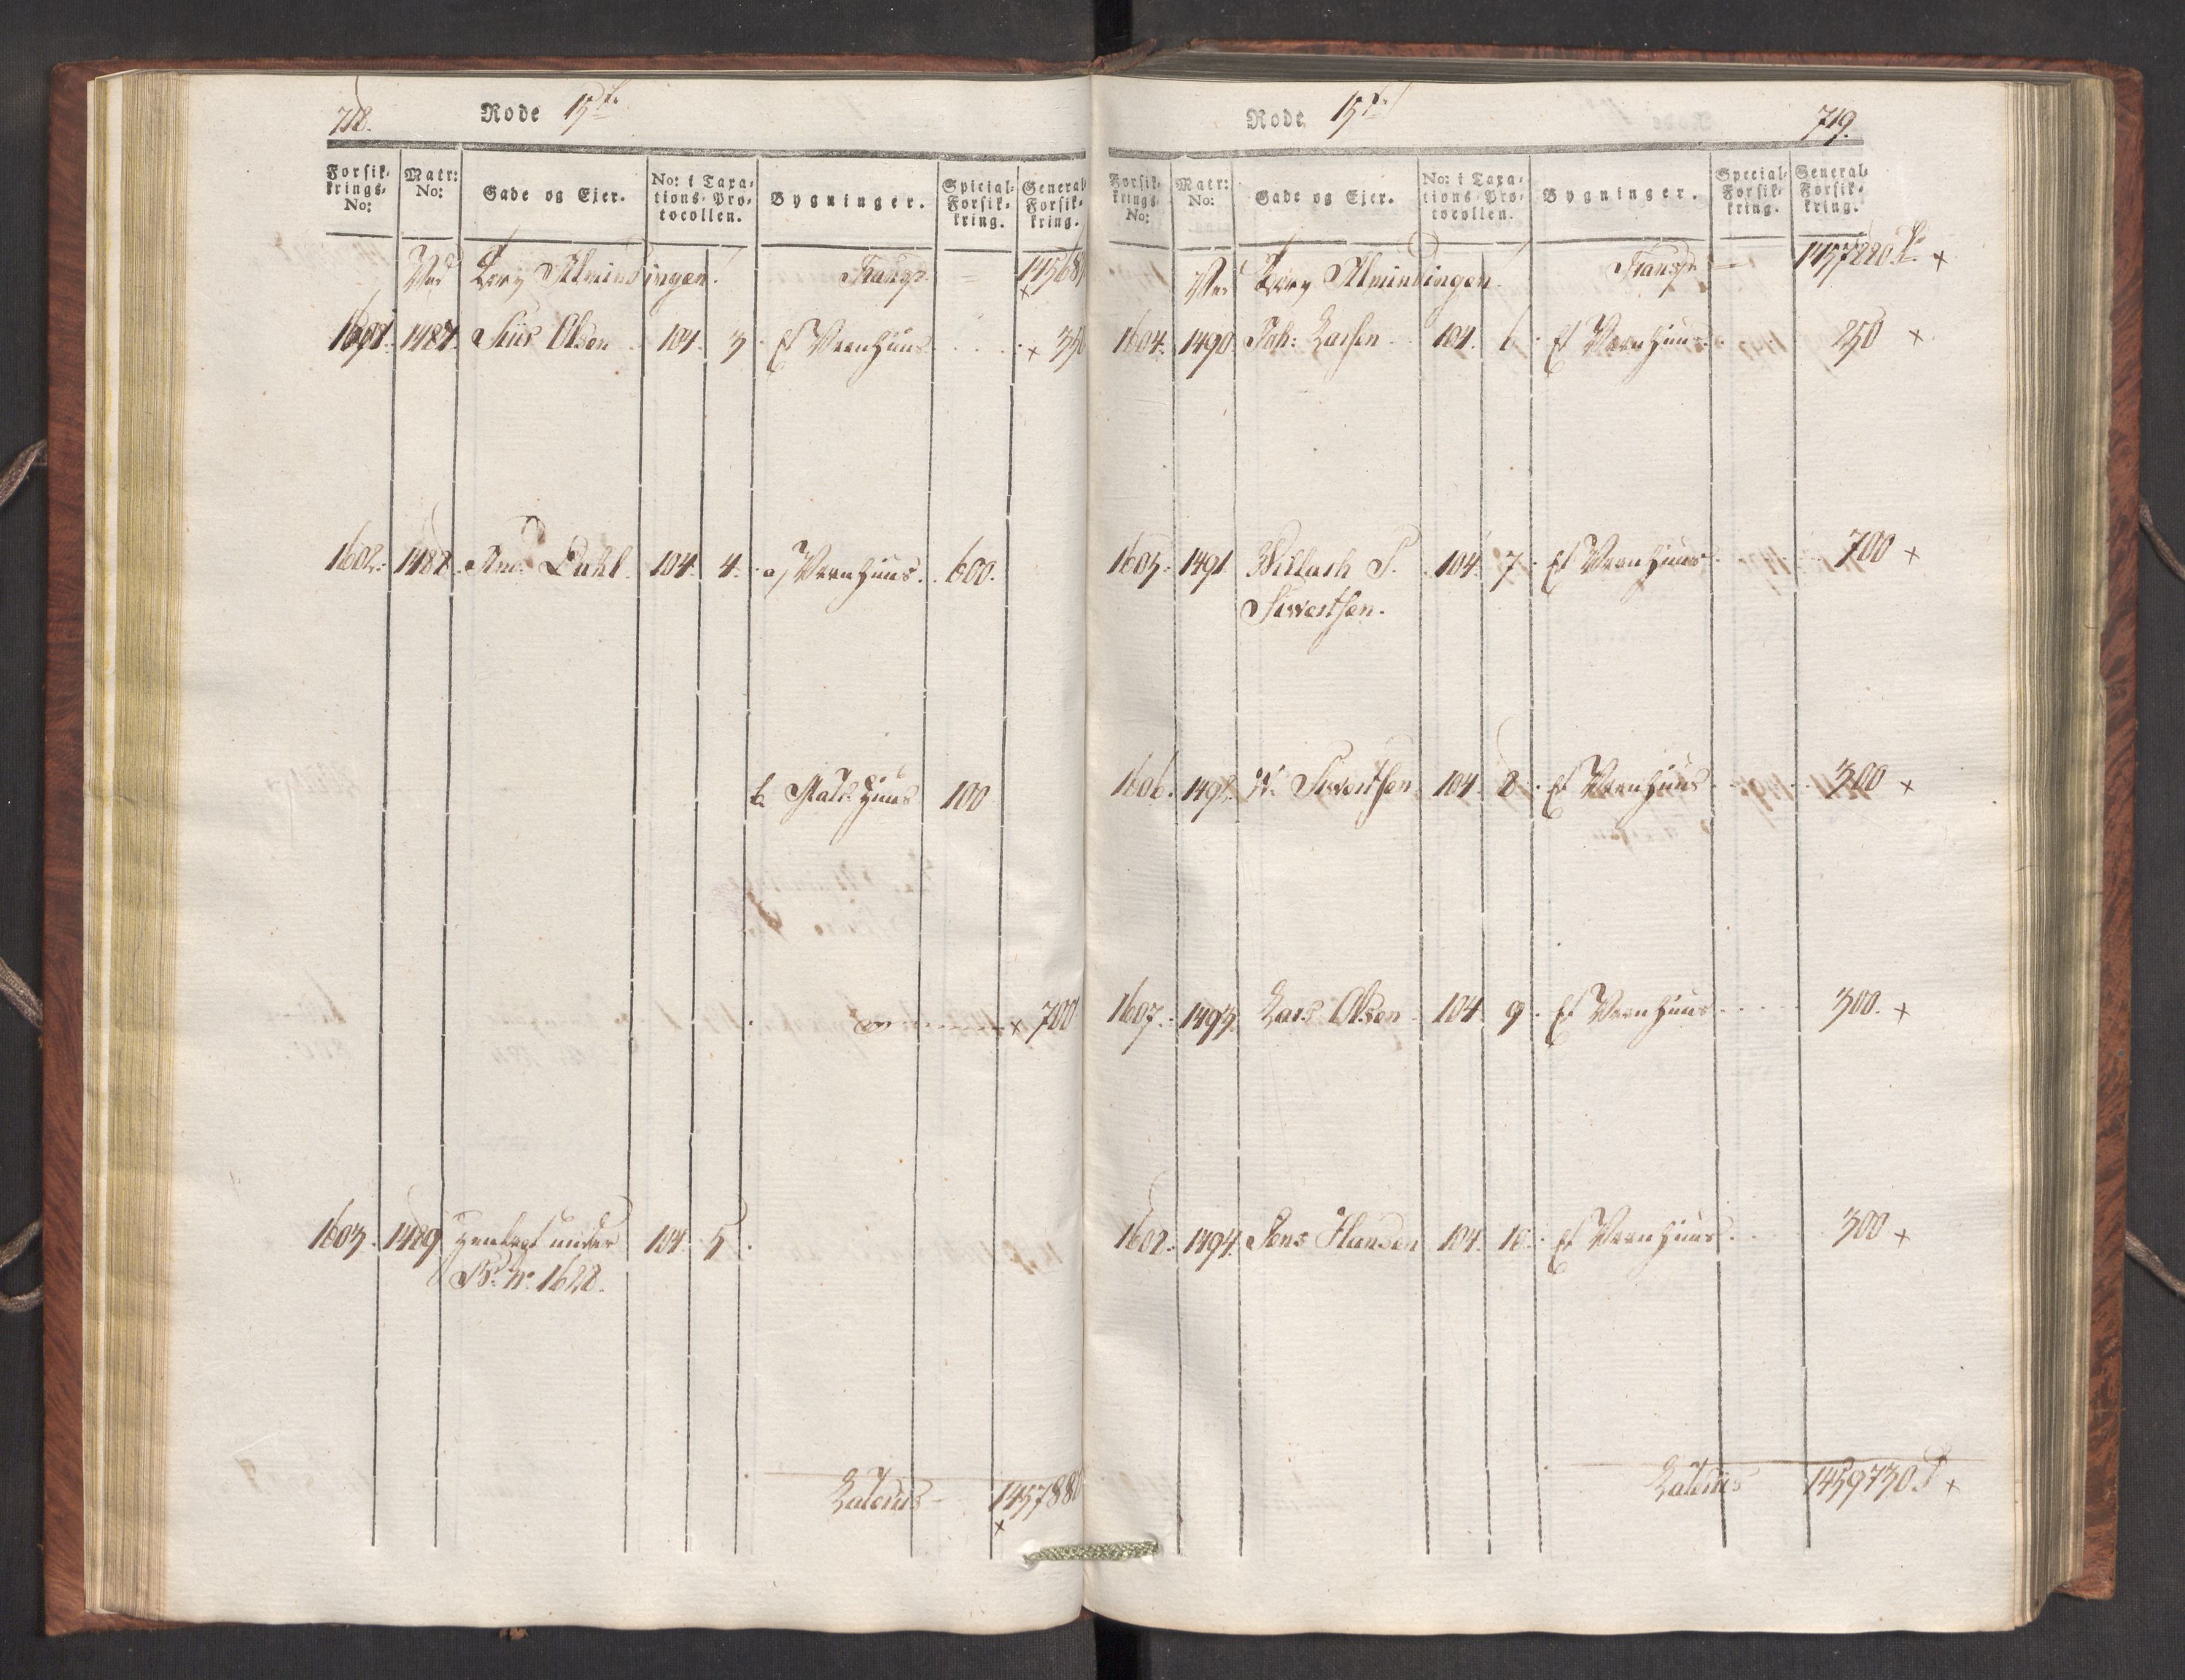 718.
Rode 15de
Forsik-
krings-
No:
Matr:
No:
Gade og Ejer.
No: i Taxa-
tions-Pro-
tocollen.
Bygninger.
Special-
Forsik-
kring.
General
Forsik-
kring.
Ved Torv Almindingen. Transp.
1601. 1487. Siur Olsen 104. 3. Et Vaanhuus
1602. 1488. And: Dahl. 104. 4. a, Vaanhuus. 600.
b. Huus 100
× 700
1603. 1489 henlagt under 104. 5.
Br. No. 1628.
Lateris
×
Rode 15de
719.
Forsik-
krings
No:
Matr:
No:
Gade og Ejer.
No: i Taxa-
tions-Pro-
tocollen.
Bygninger.
Special-
Forsik-
kring.
General-
Forsik-
kring.
Ved Torv Almindingen. Transp. ×
1604. 1490. Joh: Larsen 104. 6. Et Vaanhuus 250 ×
1605. 1491 Willach S. 104. 7. Et Vaanhuus 700 ×
Siwertsen.
1606. 1492. W. Siwertsen 104. 8. Et Vaanhuus 300 ×
1607. 1493. Lars Olsen 104. 9. Et Vaanhuus 300. ×
1608. 1494. Jens Hansen 104. 10. Et Vaanhuus 300 ×
Lateris 1459730 ×